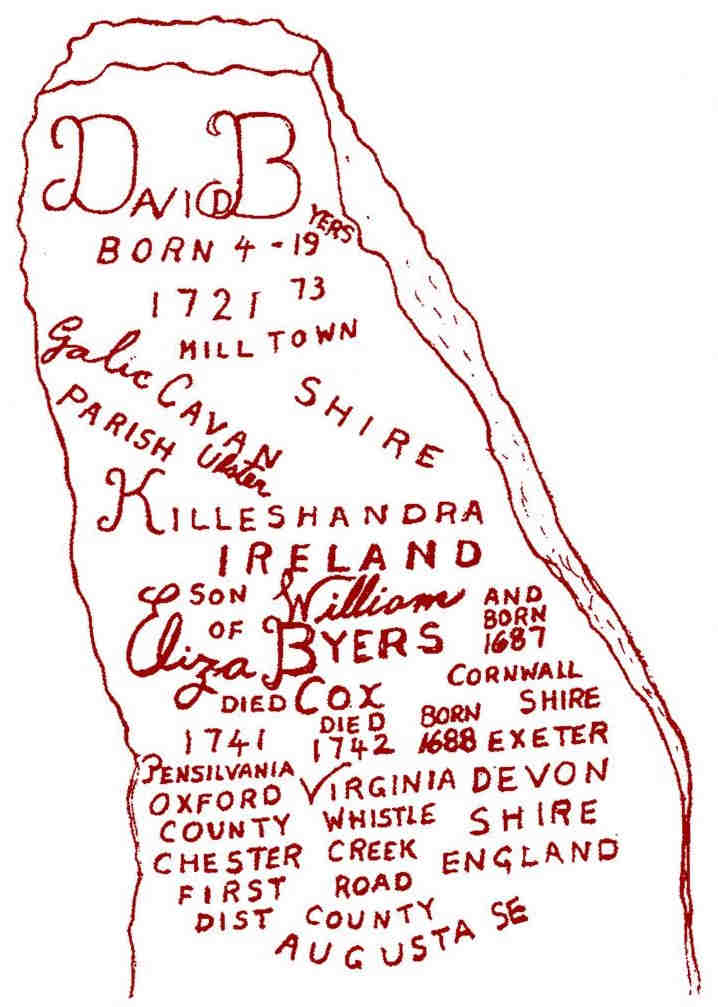 DAVID BYERS
BORN 4 - 19
1721 73
MILL TOWN
Galic CAVAN SHIRE
PARISH Ulster
KILLESHANDRA
IRELAND
SON William AND
OF BYERS BORN
Eliza 1687
DIED COX CORNWALL
1741 DIED BORN SHIRE
1742 1688 EXETER
PENSILVANIA VIRGINIA DEVON
OXFORD WHISTLE SHIRE
COUNTY CREEK ENGLAND
CHESTER ROAD
FIRST COUNTY
DIST AUGUSTA SE